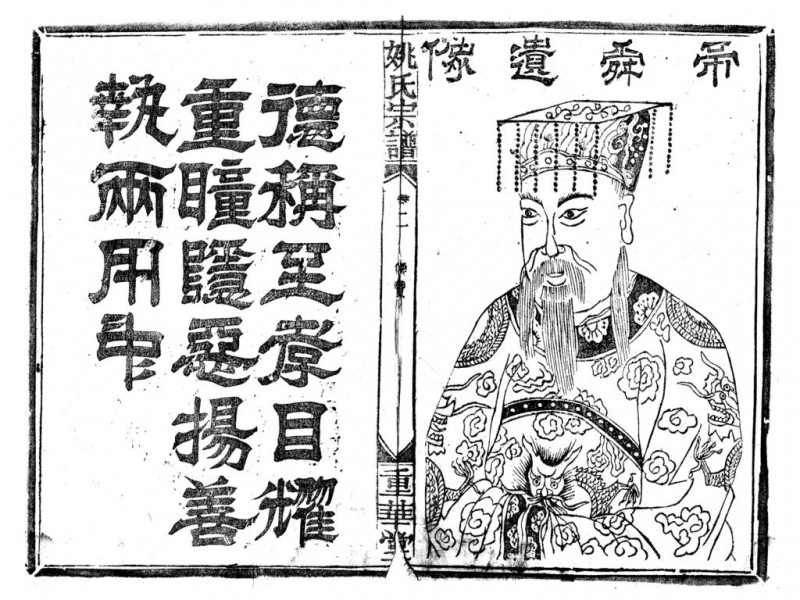 帝舜遺像
姚氏宗譜
卷二
像賛
重華堂
德稱至孝目耀
重瞳隱惡揚善
執兩用中